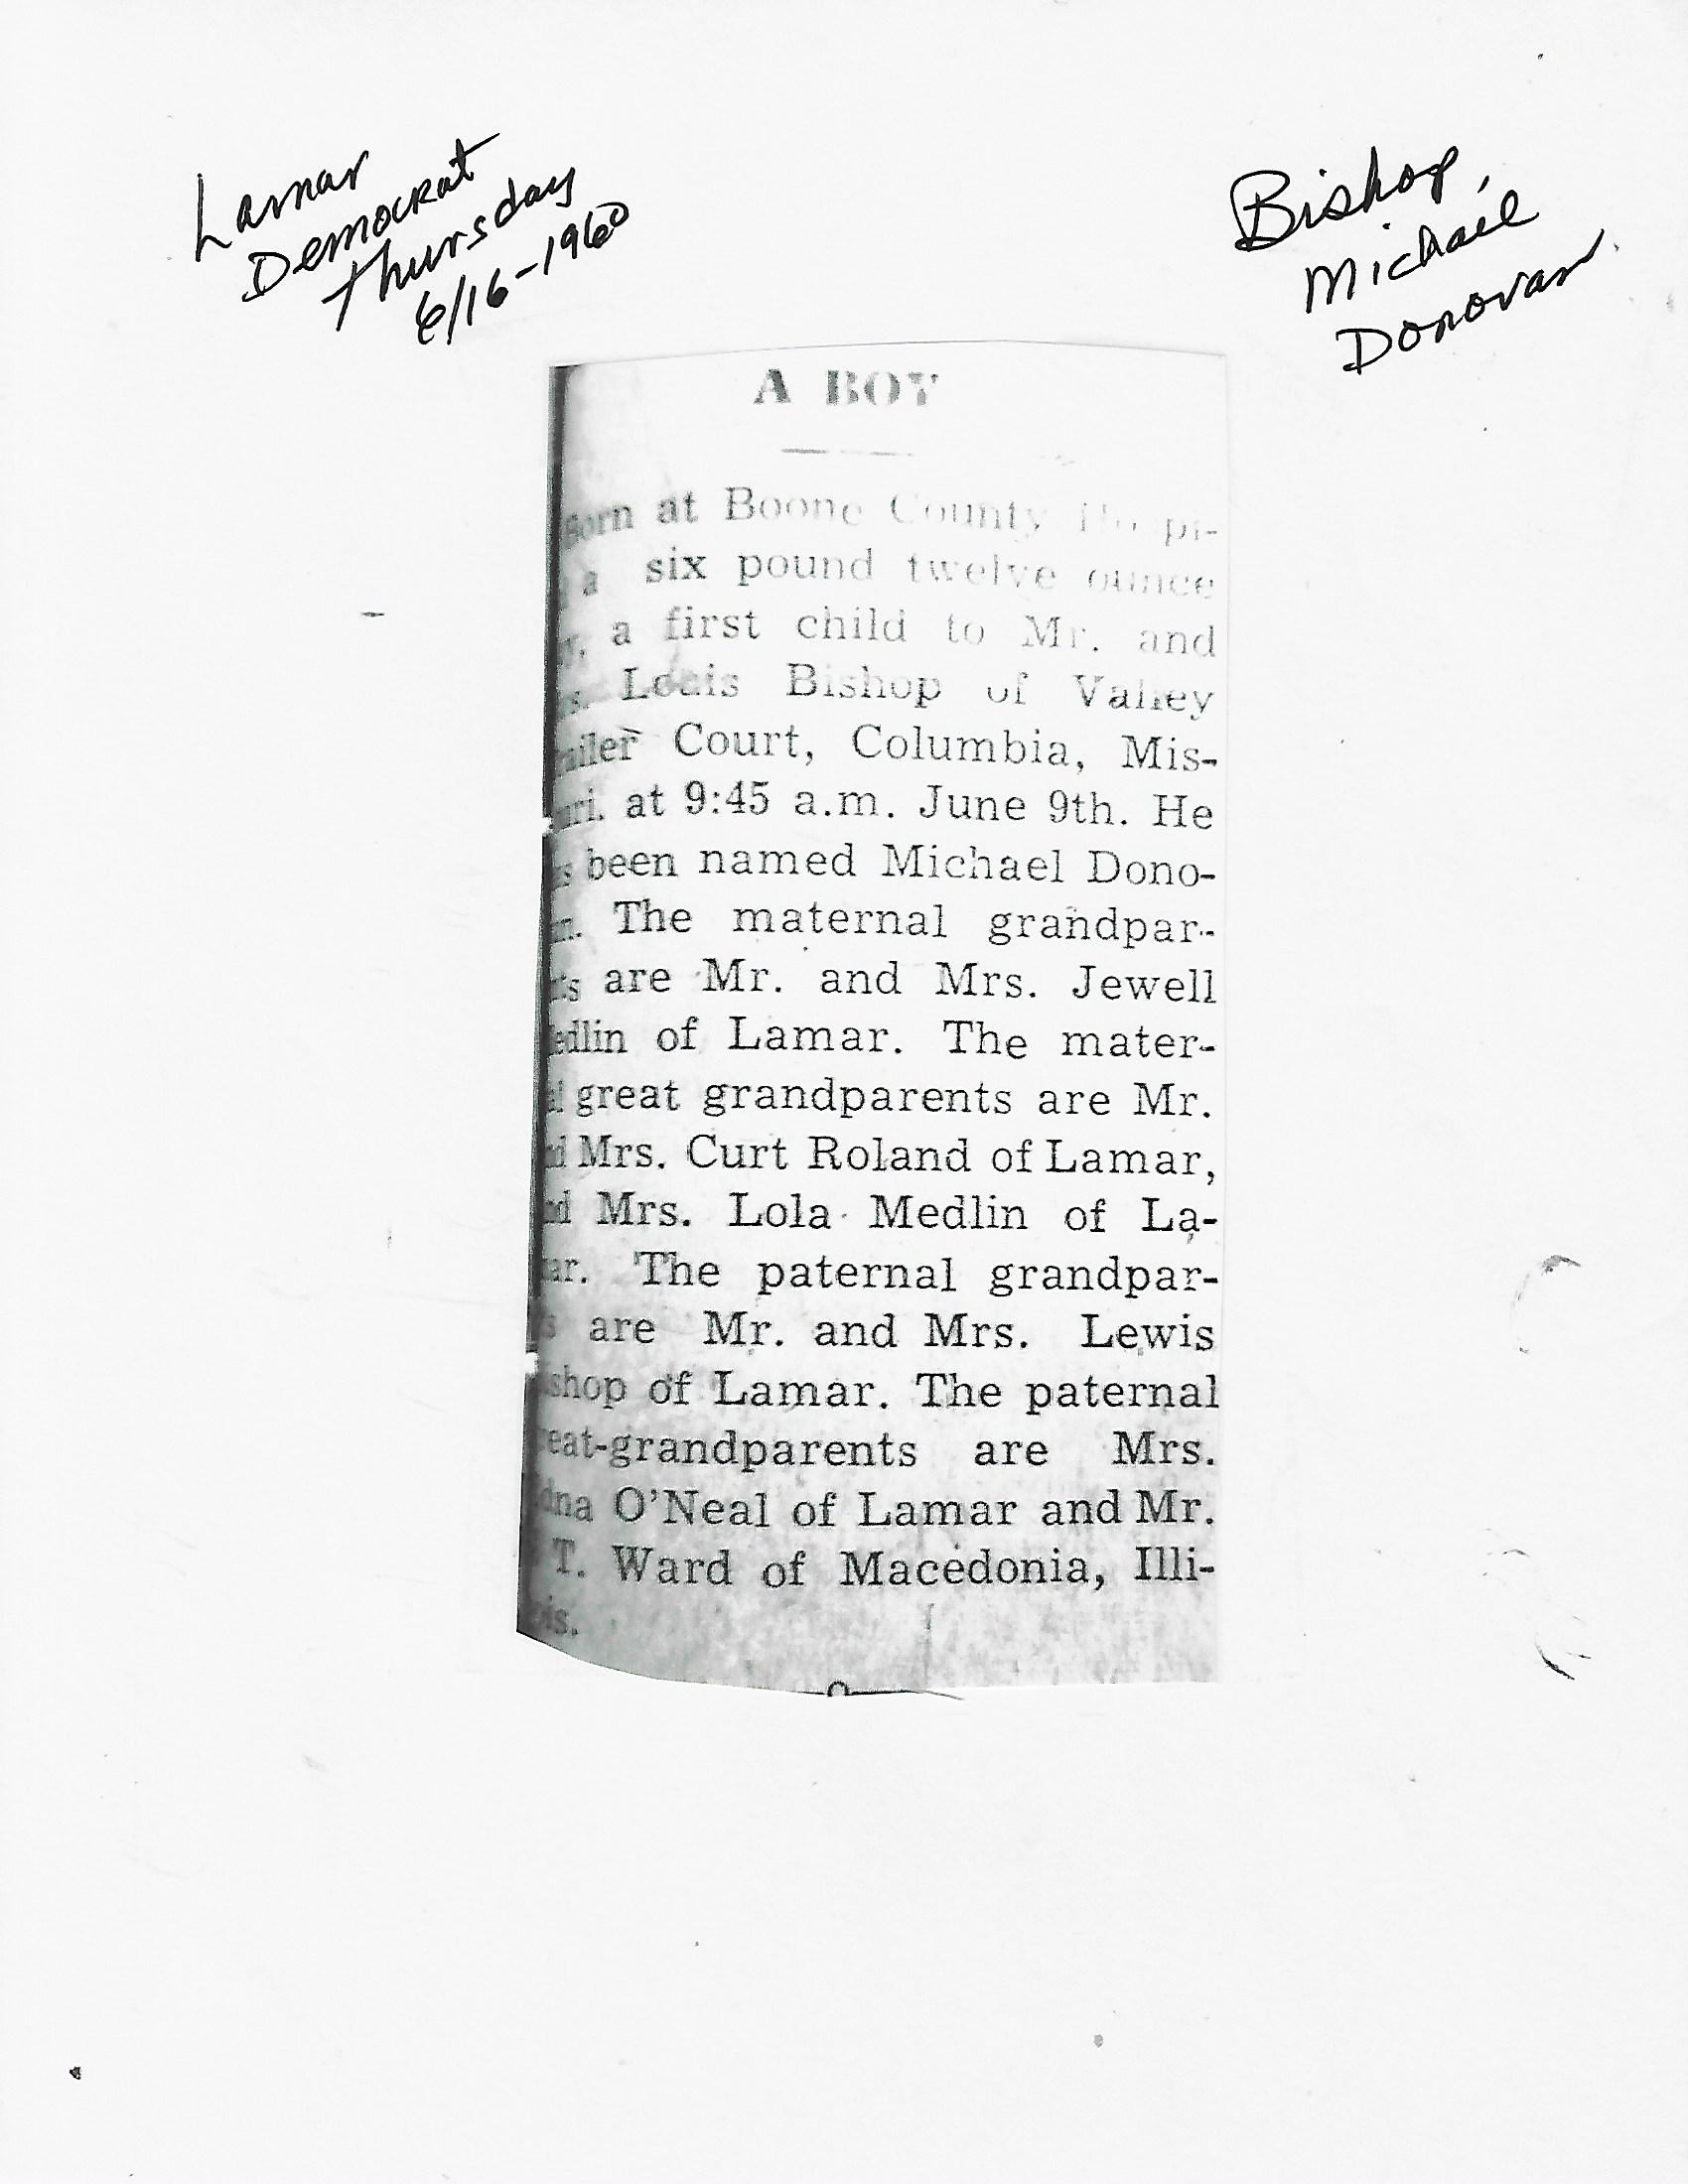 Lamar
Democrat
Thursday
6/16-1960
Bishop,
Michael
Donovan
A BOY
Born at Boone County Hospi-
a six pound twelve ounce
a first child to Mr. and
s. Louis Bishop of Valley
railer Court, Columbia, Mis-
uri. at 9:45 a.m. June 9th. He
s been named Michael Dono-
n. The maternal grandpar-
ts are Mr. and Mrs. Jewell
edlin of Lamar. The mater-
al great grandparents are Mr.
nd Mrs. Curt Roland of Lamar,
nd Mrs. Lola Medlin of La-
ar. The paternal grandpar-
s are Mr. and Mrs. Lewis
shop of Lamar. The paternal
reat-grandparents are Mrs.
dna O'Neal of Lamar and Mr.
T. Ward of Macedonia, Illi-
is.